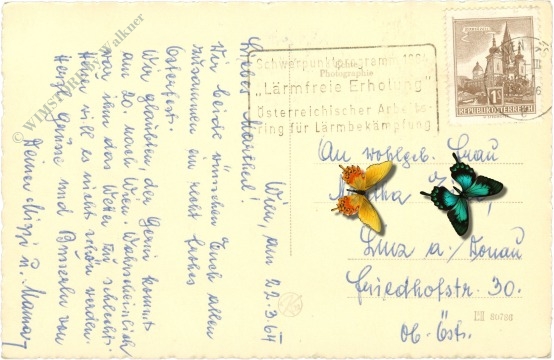 Wien, am 22.3.64
Liebes Mauserl!
Wir beide wünschen Euch allen
zusammen ein recht frohes
Osterfest.
Wir glauben, der Gerni kommt
am 20. nach Wien. Wahrscheinlich
war ihm das Wetter zu schlecht.
Hier will es nicht schön werden.
Herzl. Grüsse und Busserln von
Deiner Mizzi u. Mama
© WIMSTORIES Walkner
Schwerpunktprogramm 1964
Echte
Photographie
„Lärmfreie Erholung"
Österreichischer Arbeits-
ring für Lärmbekämpfung
1S
REPUBLIK ÖSTERREICH
An wohlgeb. Frau
Linz a./Donau
Friedhofstr. 30.
Ob. Öst.
80786